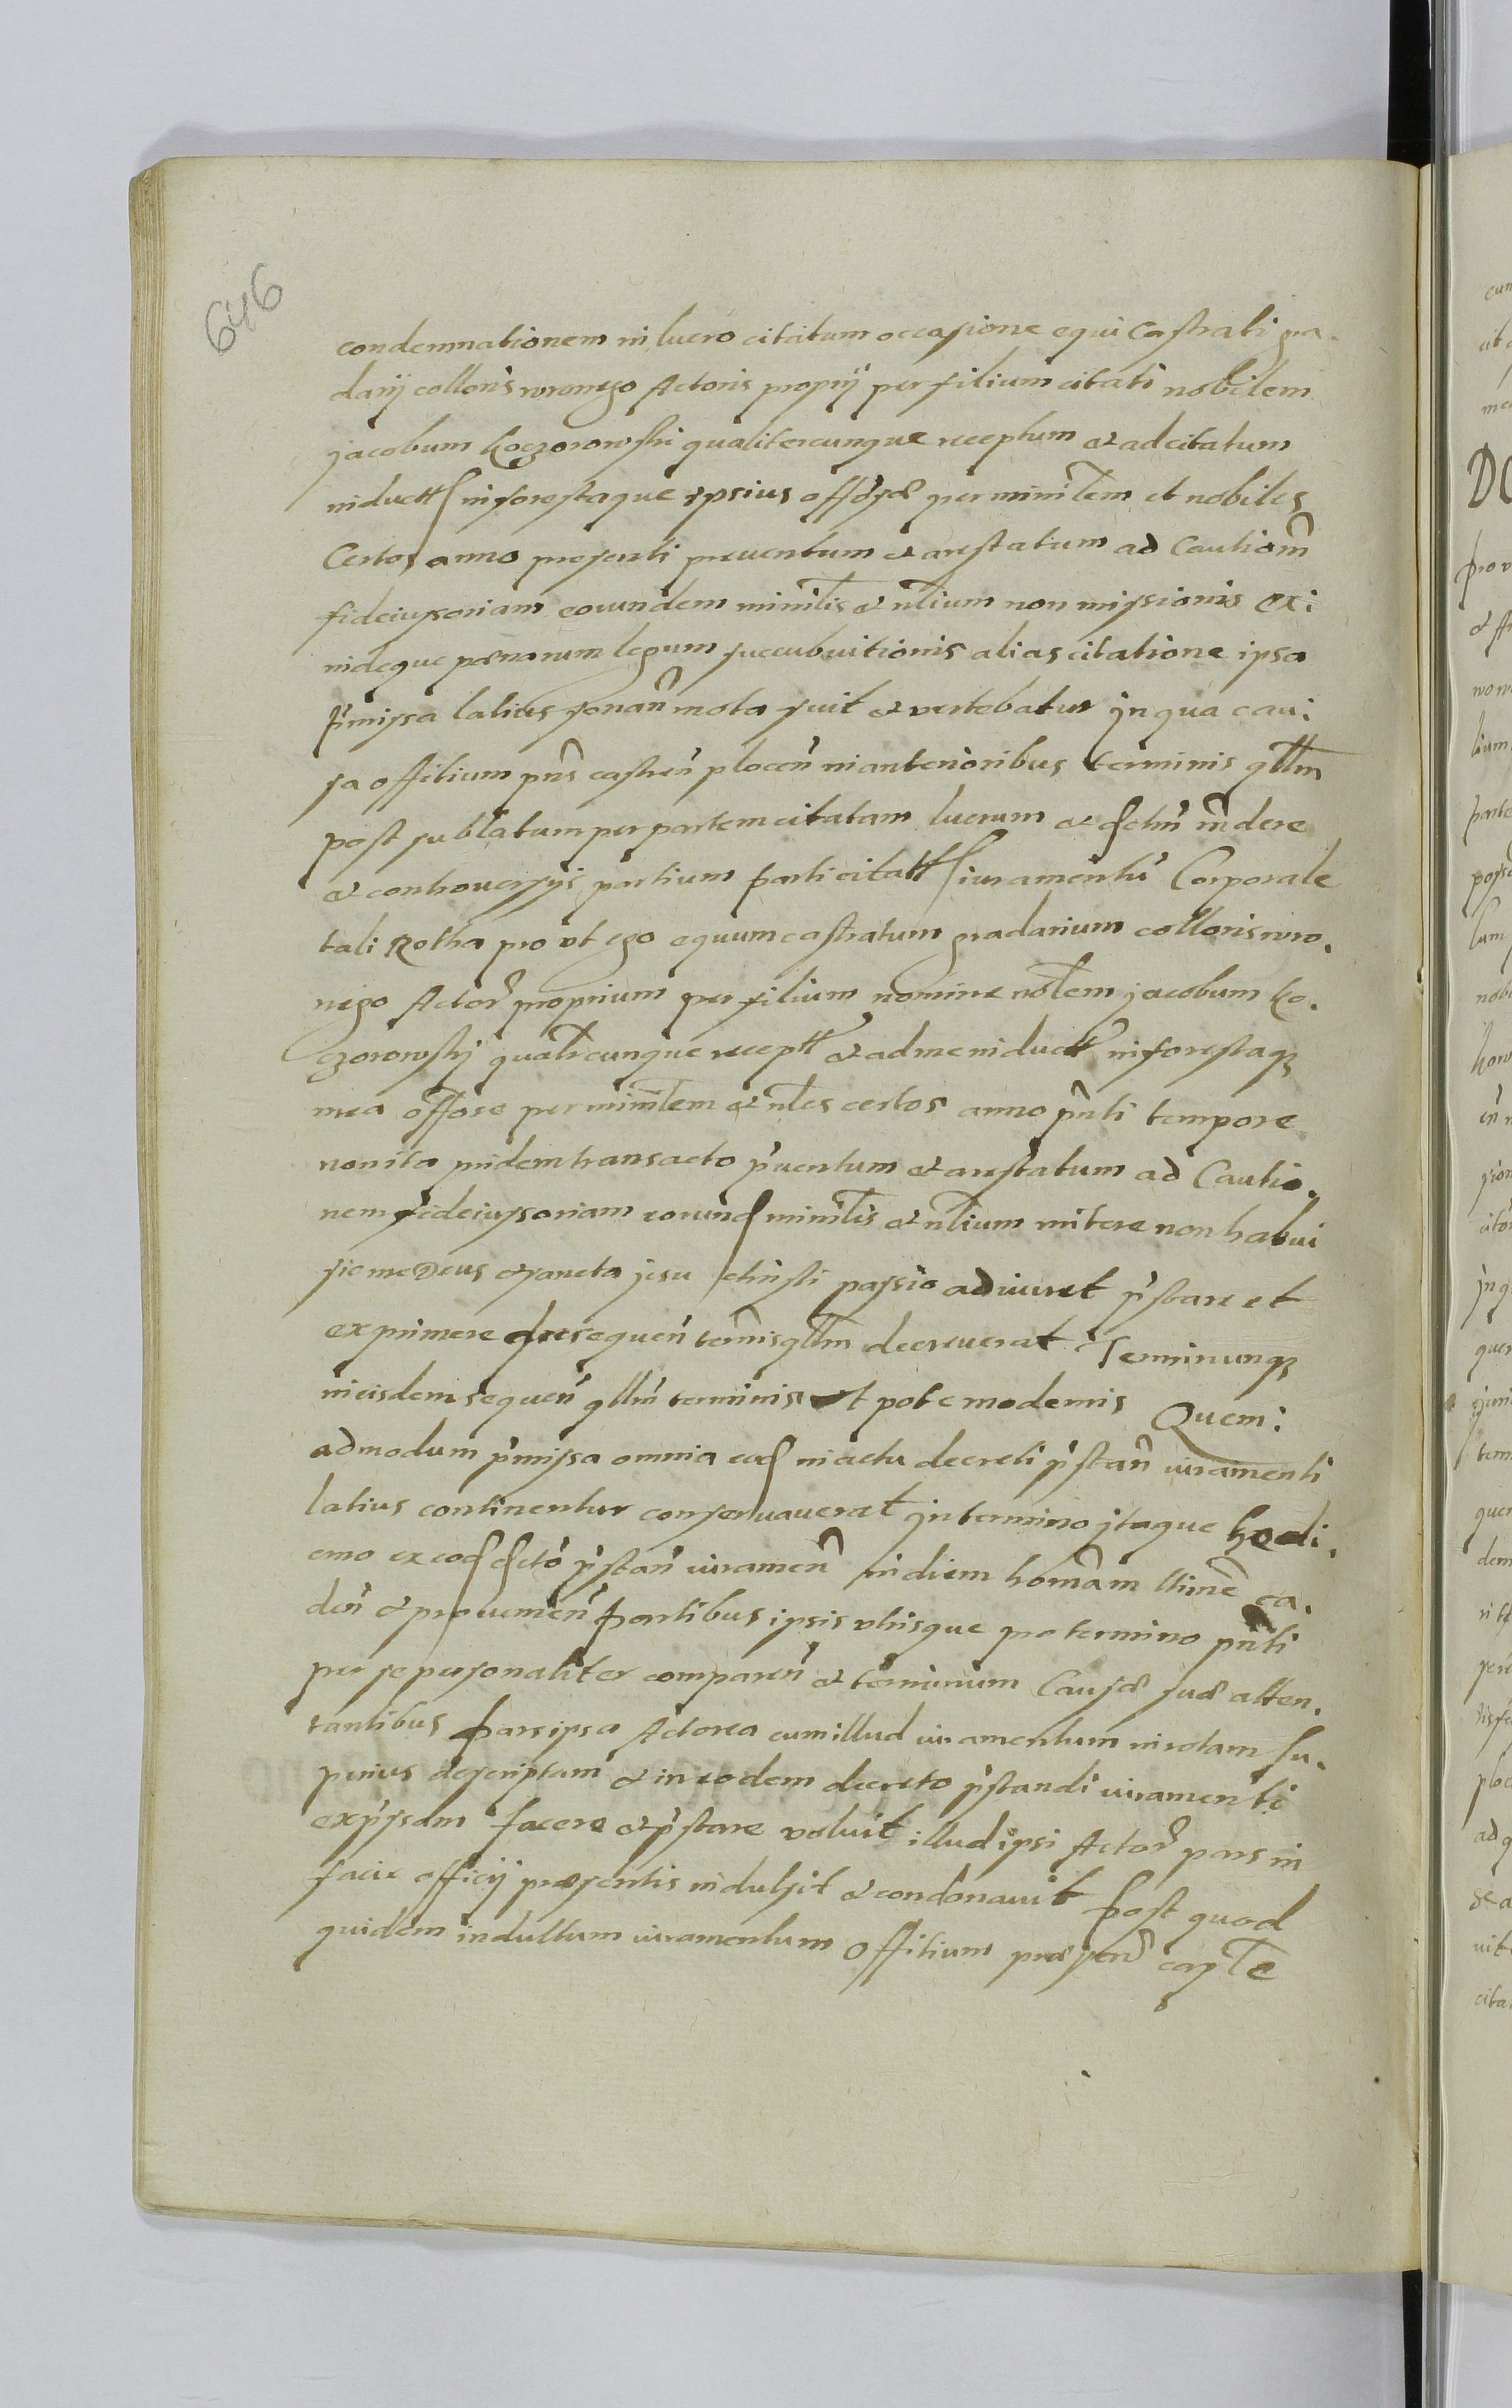 646
condemnationem in lucro citatum occasione equi Castrati gra-
darii colloris wronego Actoris proprii per filium citati nobilem
jacobum koczorowski qualitercunque receptum et ad citatum
induct in forestaque ipsius per minlem et nobiles
Certos anno presenti preuentum et arestatum ad Cautiom
fideiussoriam eorundem minilis et nlium non missionis exi
indeque penarum legum succubuitionis alias citatione ipsa
pmissa latius sonan mota fuit et vertebatur jn qua cau:
sa offitium pns castren plocen in anterioribus terminis qllm
post sublatum per partem citatam lucrum et
et controuersiis partium parti citatt iuramentu Corporale
tali Rotha pro vt ego equum castratum gradarium colloris wro.
nego Actor proprium per filium nomine nlem jacobum ko.
czorowskj qualrcunque recept et ad me induct in forestaq
mea per minlem et nles certos anno pnti tempore
non ita pridem transacto puentum et arestatum ad Cautio.
nem fideiussoriam eorund minilis et nlium mitere non habui
sic me Deus et sancta jesu christi passio adiuuet pstare et
exprimere sequen termis qllm decreuerat Terminumq
in eisdem sequen qllm terminis vt pote modernis Quem:
admodum pmissa omnia ead in actu decreti pstan iuramenti
latius continentur conseruauerat jn termino jtaque hodi.
erno ex eod pstan iuramen in diem ca.
den et prouenien partibus ipsis vtrisque pro termino pnti
per se personaliter comparen et terminum Causae suae atten.
tantibus pars ipsa Actorea cum illud iuramentum in rotam su.
perius descriptam et in eodem decreto pstandi iuramenti
expssam facere et pstare voluit illud ipsi Actor pars in
facie officij praesentis indulsit et condonauit Post quod
quidem indultum iuramentum Offitium praesen